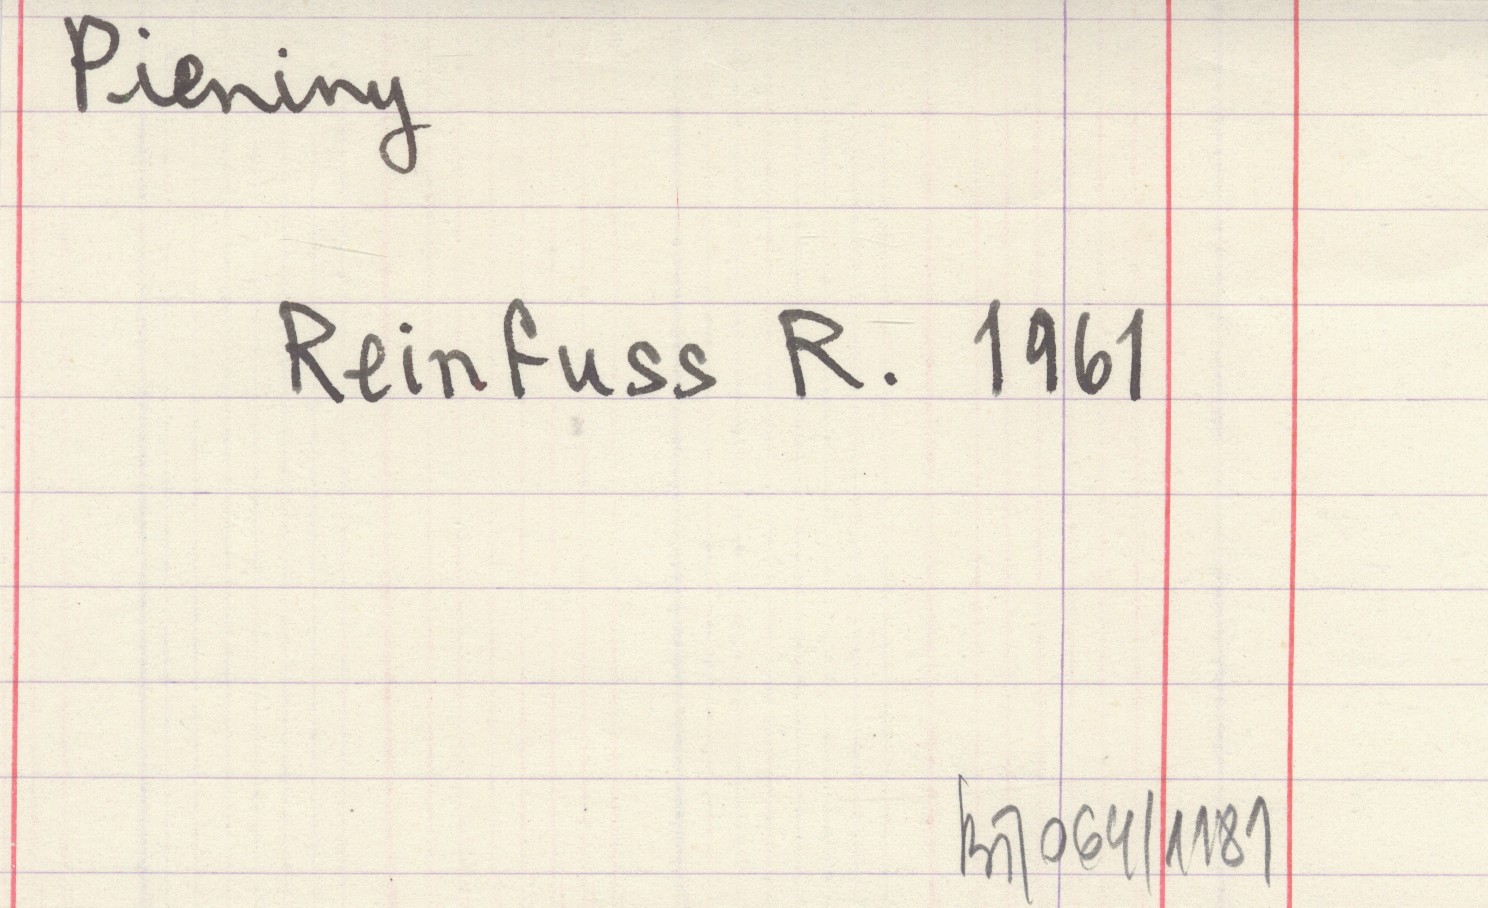 Pieniny
Reinfuss R. 1961
064/1181